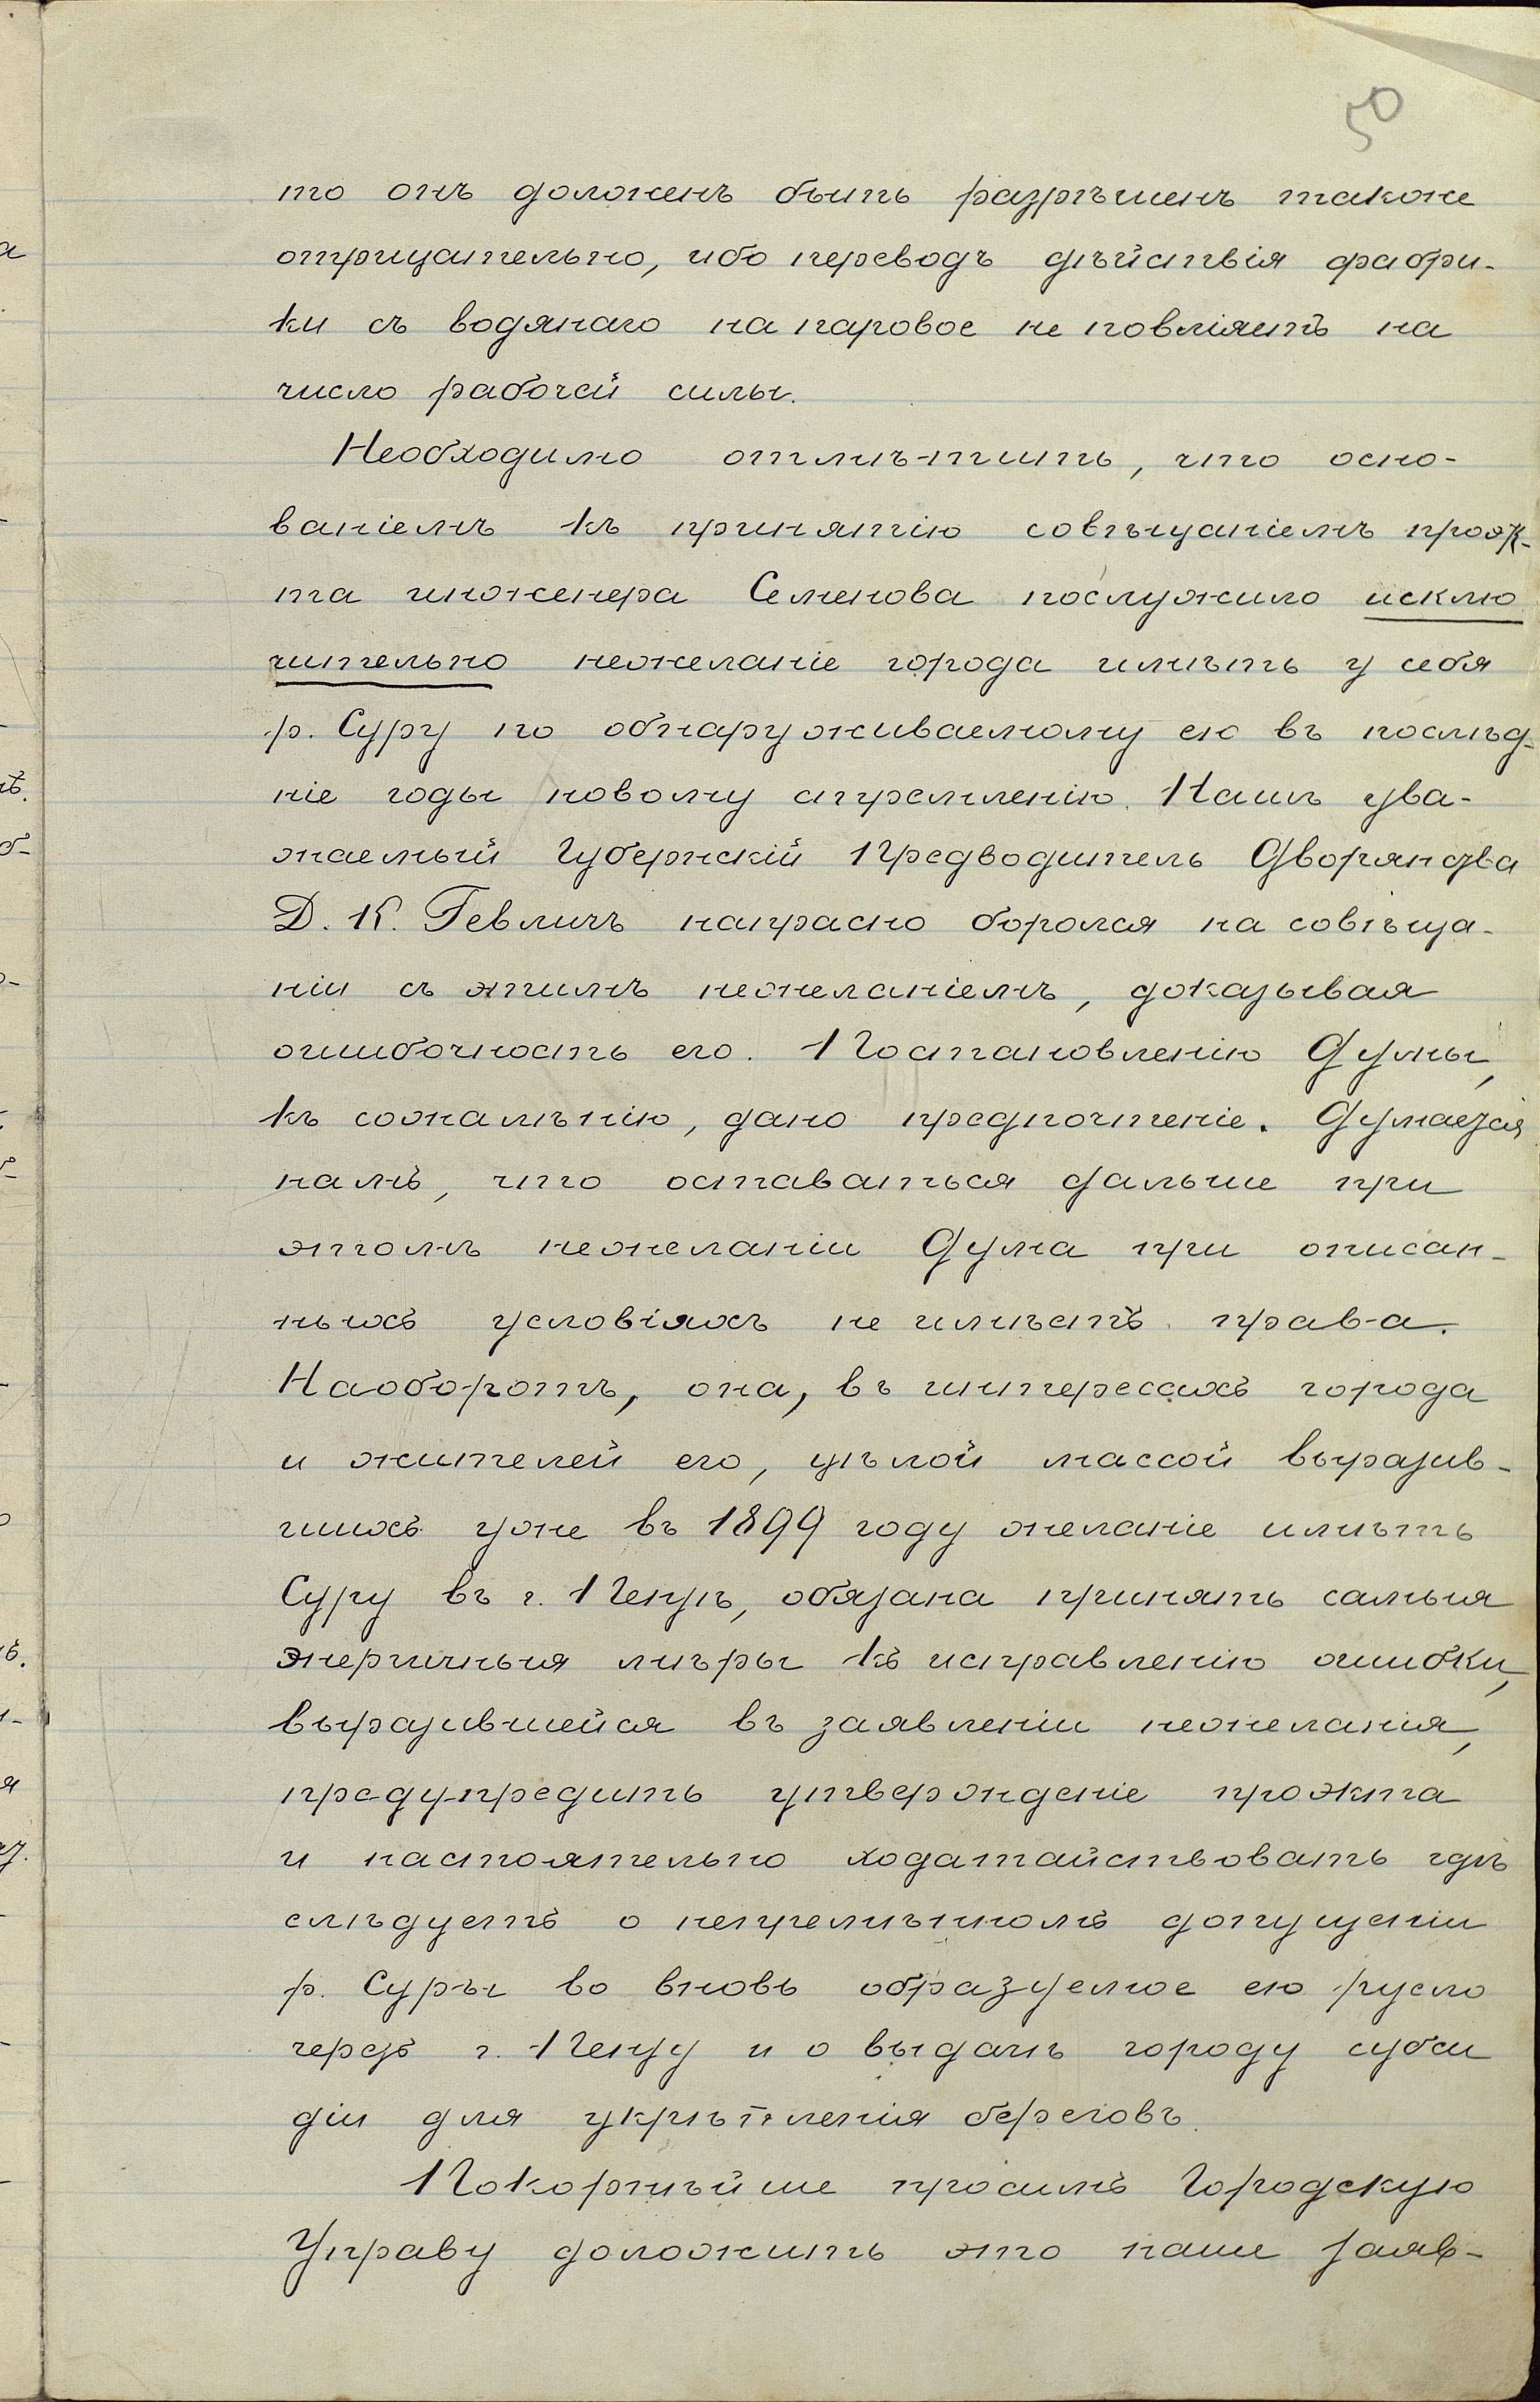 50
то онъ долженъ быть разрѣшенъ также
отрицательно, ибо переводъ дѣйствія фабри-
ки съ водянаго на паровое не повліяетъ на
число рабочей силы.
Необходимо отмѣтить, что осно-
ваніемъ къ принятію совѣщаніемъ проэк-
та инженера Семенова послужило исклю
чительно нежеланіе города имѣть у себя
р. Суру по обнаруживаемому ею въ послѣд-
ніе годы новому стремленію. Нашъ ува-
жаемый Губернскій Предводитель Дворянства
Д. К. Гевличъ напрасно боролся на совѣща-
ніи съ этимъ нежеланіемъ, доказывая
ошибочность его. Постановленію Думы,
къ сожалѣнію, дано предпочтеніе. Думается
намъ, что оставаться дальше при
этомъ нежеланіи Дума при описан-
ныхъ условіяхъ не имѣетъ права.
Наоборотъ, она, въ интересахъ города
и жителей его, цѣлой массой выразив-
шихъ уже въ 1899 году желаніе имѣть
Суру въ г. Пензѣ, обязана принять самыя
энергичныя мѣры къ исправленію ошибки,
выразившейся въ заявленіи нежеланія,
предупредить утвержденіе проэкта
и настоятельно ходатайствовать гдѣ
слѣдуетъ о непремѣнномъ допущеніи
р. Суры во вновь образуемое ею русло
черезъ г. Пензу и о выдачѣ городу субси
діи для укрѣпленія береговъ.
Покорнѣйше просимъ Городскую
Управу доложить это наше заяв-